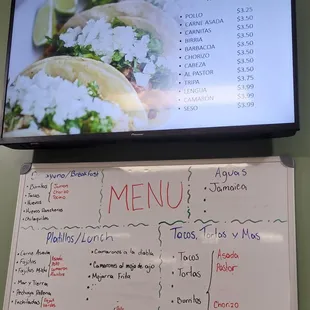 • POLLO $3.25
• CARNE ASADA $3.50
• CARNITAS $3.50
• BIRRIA $3.50
• BARBACOA $3.50
• CHORIZO $3.50
• CABEZA $3.50
• AL PASTOR $3.50
• TRIPA $3.75
• LENGUA $3.99
• CAMARÓN $3.99
• SESO $3.99
MENU
Breakfast
• Burritos
• Tacos
• Huevos
• Huevos Rancheros
• Chilaquiles
Jamon
Chorizo
Aguas
• Jamaica
Platillos/Lunch
• Carne Asada
• Fajitas
• Fajitas Mixtas
• Mar y Tierra
• Pechuga Rellena
• Enchiladas
• Camarones a la diabla
• Camarones al mojo de ajo
• Mojarra Frita
Tacos, Tortas y Mas
• Tacos
• Tortas
• Burritos
Asada
Pastor
Chorizo